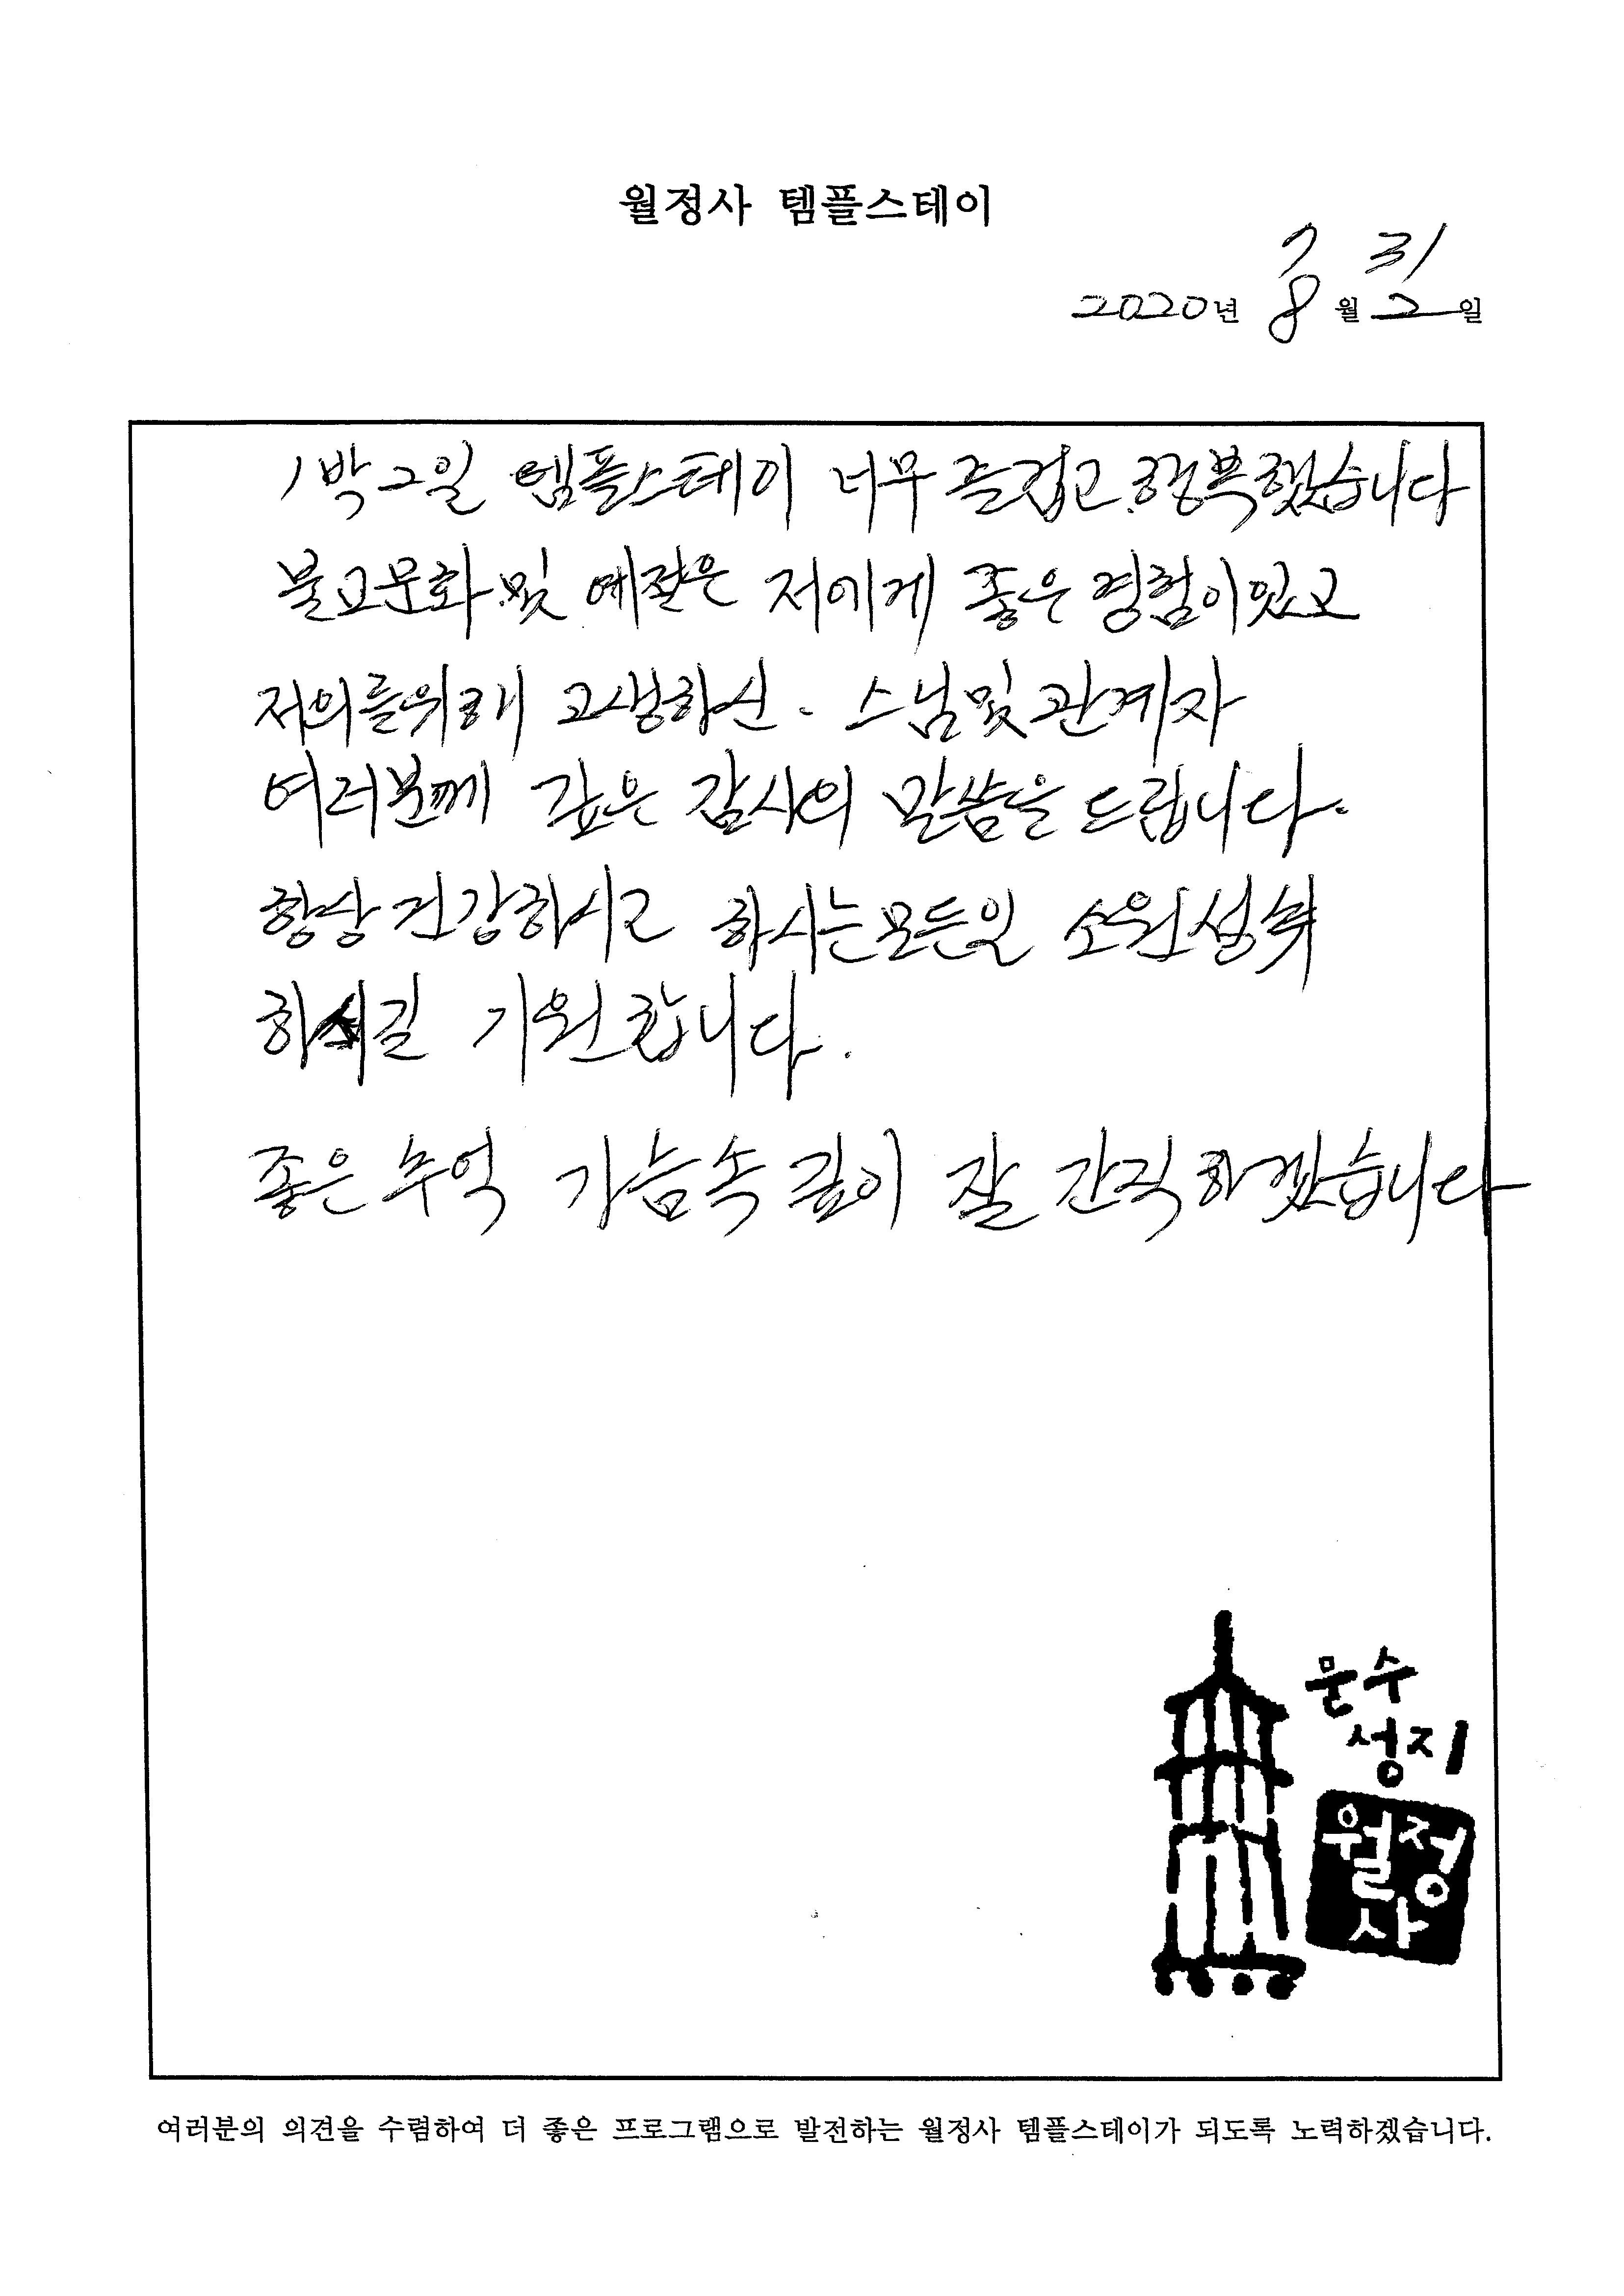 월정사 템플스테이
7 31
2020년 8월 2일
1박2일 템플스테이 너무 즐겁고 행복했습니다
불교문화및 예절은 저에게 좋은 경험이었고
저의를위해 고생하신. 스님및 관계자
여러분께 깊은 감사의 말씀을 드립니다.
항상 건강하시고 하시는모든일 소원성취
하시길 기원합니다.
좋은 추억 가슴속 깊이 잘 간직하겠습니다
문수
성지
월정
사
여러분의 의견을 수렴하여 더 좋은 프로그램으로 발전하는 월정사 템플스테이가 되도록 노력하겠습니다.